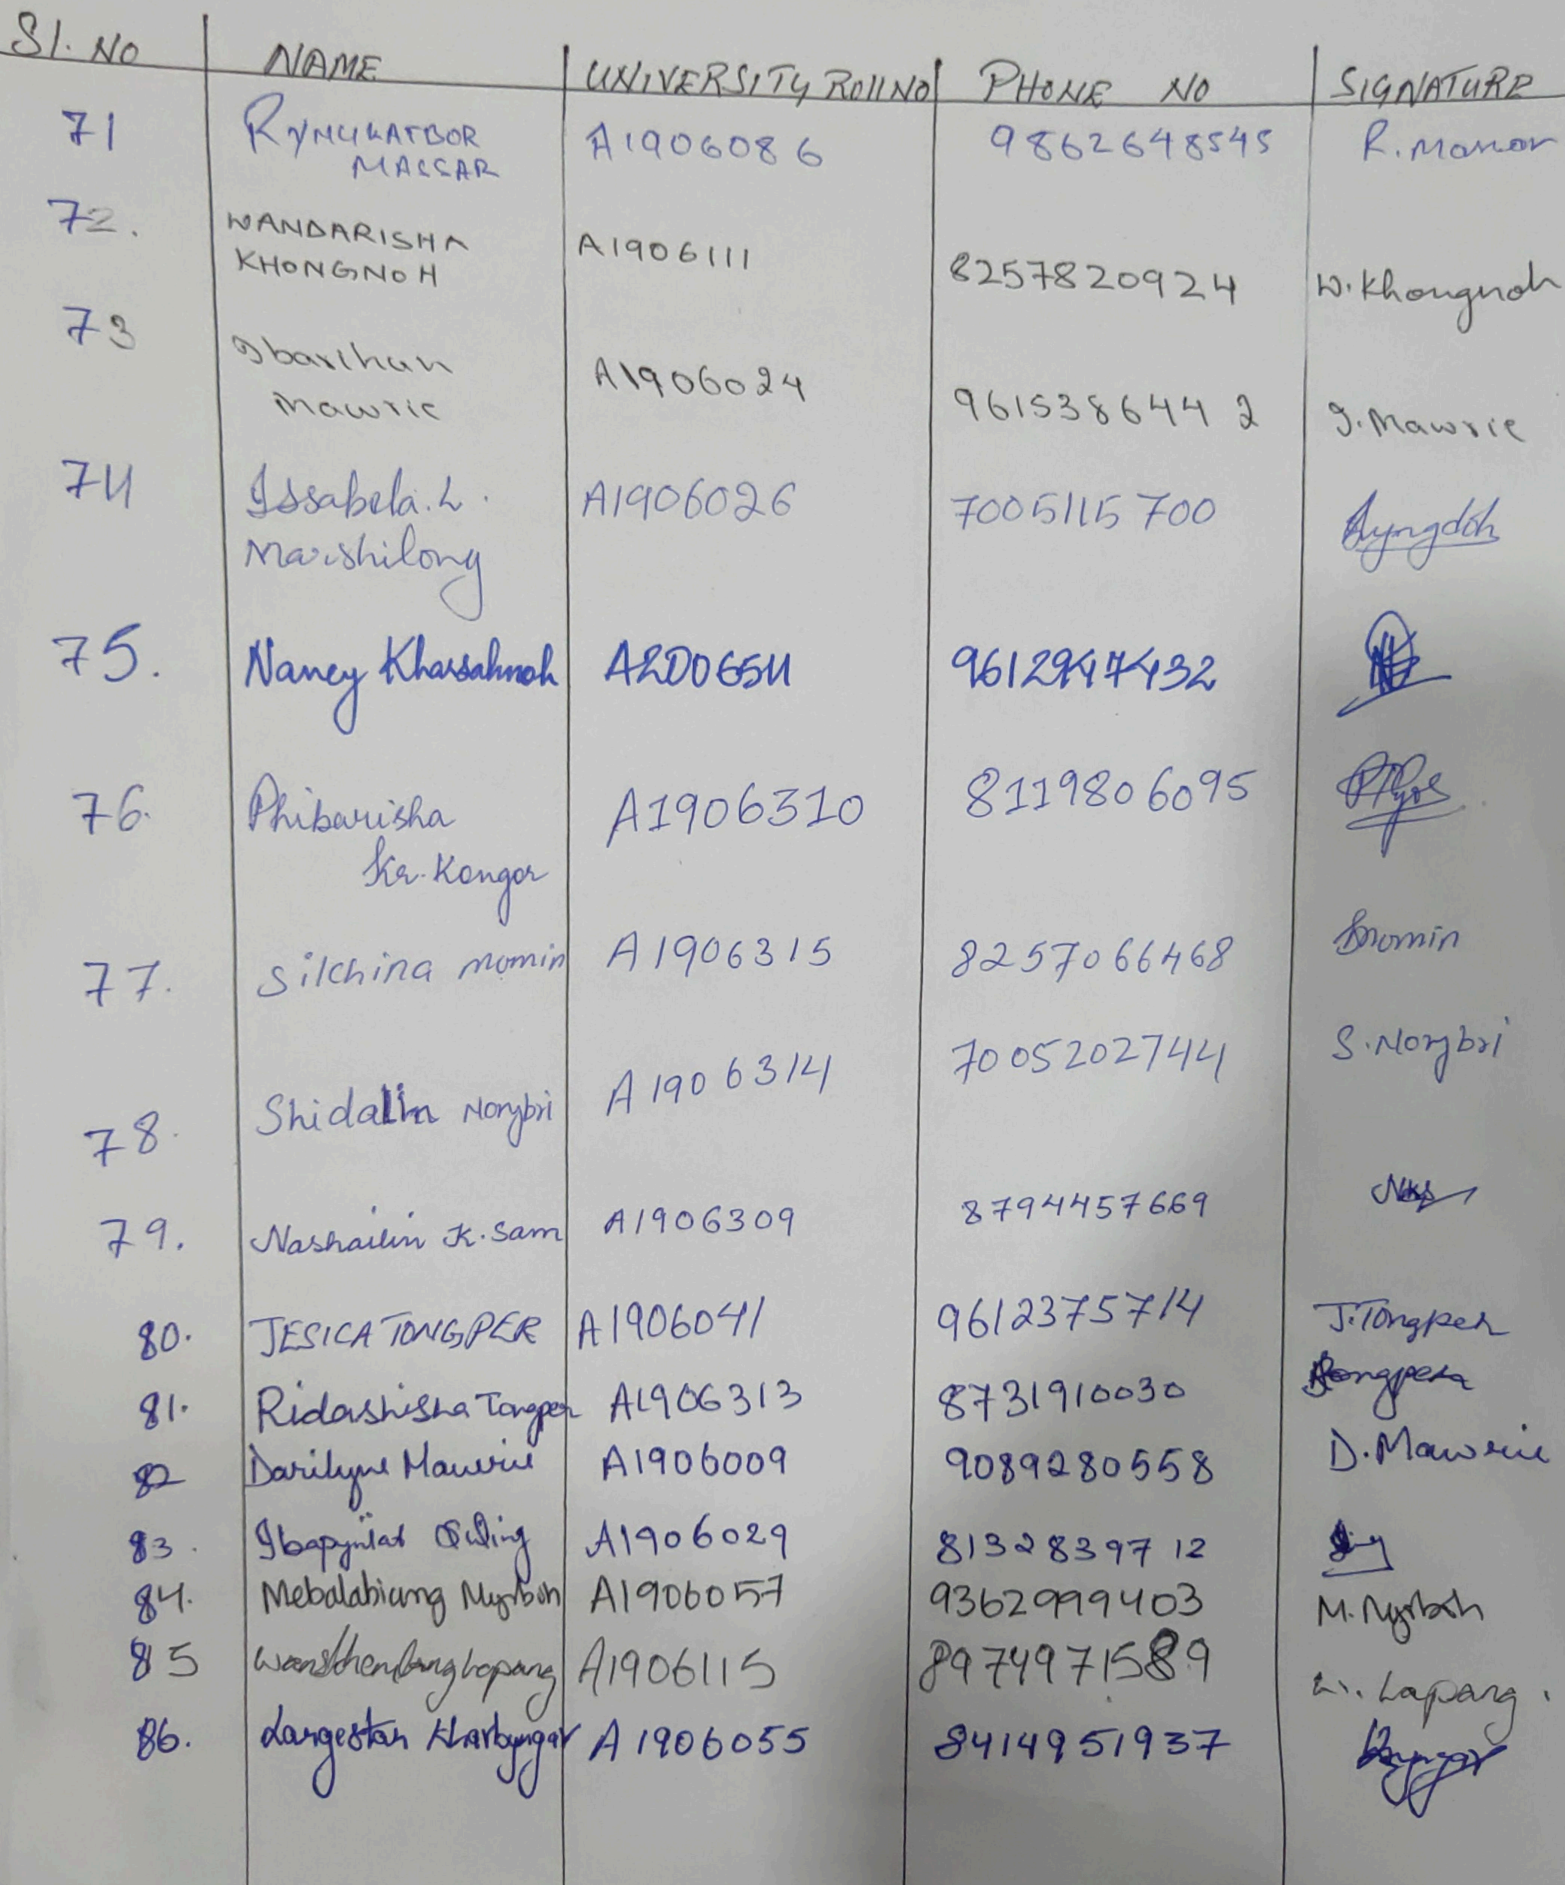 Sl. NO NAME UNIVERSITY Roll NO PHONE NO SIGNATURE
71 A1906086 9862648545 R.
MASSAR
72. WANDARISHA A1906111 8257820924 W. Khongnoh
KHONGNOH
73 Ibarihun A1906024 9615386442 I. Mawrie
Mawrie
74 Issabela. L. A1906026 7005115700
Marshilong
75. Nancy Kharsahnoh A2006511 9612947432
76. Phibarisha A1906310 8119806095
Kr. Kongor
77. Silchina momin A1906315 8257066468 Smomin
78. Shidalin Nongbri A1906314 7005202744 S. Nongbri
79. Nashailin K. Sam A1906309 8794457669
80. JESICA TONGPER A1906041 9612375714 J. Tongper
81. Ridashisha Tongper A1906313 8731910030
82 Darilyne Mawrie A1906009 9089280558 D. Mawrie
83. Ibapyntat A1906029 8132839712
84. Mebalabiang Myrboh A1906057 9362999403 M. Myrboh
85 A1906115 8974971589 Lapang.
86. Largestar Kharbyngar A1906055 8414951937